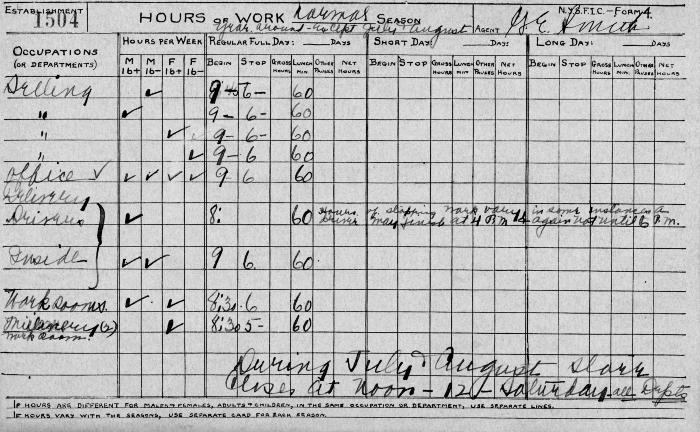 ESTABLISHMENT 1504 HOURS OF WORK Normal SEASON N.Y.S.F.I.C.-FORM 4.
Year around-except July & August AGENT G.E. Smith
OCCUPATIONS (OR DEPARTMENTS) HOURS PER WEEK REGULAR FULL DAY: DAYS SHORT DAY: DAYS LONG DAY: DAYS
M 16+ M 16- F 16+ F 16- BEGIN STOP GROSS HOURS LUNCH MIN. OTHER PAUSES NET HOURS BEGIN STOP GROSS HOURS LUNCH MIN. OTHER PAUSES NET HOURS BEGIN STOP GROSS HOURS LUNCH MIN. OTHER PAUSES NET HOURS
Selling ✓ 9 45 6- 60
" ✓ 9- 6- 60
" ✓ 9- 6- 60
" ✓ 9- 6 60
Office ✓ ✓ ✓ ✓ ✓ 9 6 60
Delivery
Drivers ✓ 8: 60 Hours of stopping work vary in some instances a
Driver may finish at 4 P.M. & again not until 6 P.M.
Inside ✓ ✓ 9 6. 60
Workrooms. ✓ ✓ 8:30 6 60
Millinery (2) ✓ 8:30 5- 60
work room.
During July & August Store
Closes at Noon - 12 - Saturday-all Depts
IF HOURS ARE DIFFERENT FOR MALES + FEMALES, ADULTS + CHILDREN, IN THE SAME OCCUPATION OR DEPARTMENT, USE SEPARATE LINES.
IF HOURS VARY WITH THE SEASONS, USE SEPARATE CARD FOR EACH SEASON.